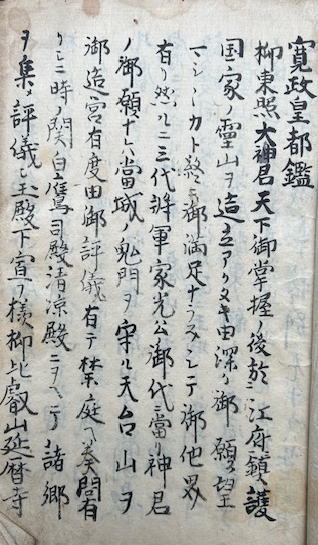 寛政皇都鑑
抑東照大神君天下御掌握ノ後於二江府鎮護
国家ノ霊山ヲ造立アリタキ由深ク御願望
マシ〳〵シカト終ニ御満足ナラスシテ御他界
有リ然ルニ三代将軍家光公御代ニ当リ神君
ノ御願ナレハ當城ノ鬼門ヲ守ル天台山ヲ
御造宮有度由御評儀有テ禁庭ヘ奏問有
リシニ時ノ関白鷹司殿清凉殿ニヲヘテ諸卿
ヲ集メ評儀シ玉殿下宣フ様抑比叡山延暦寺